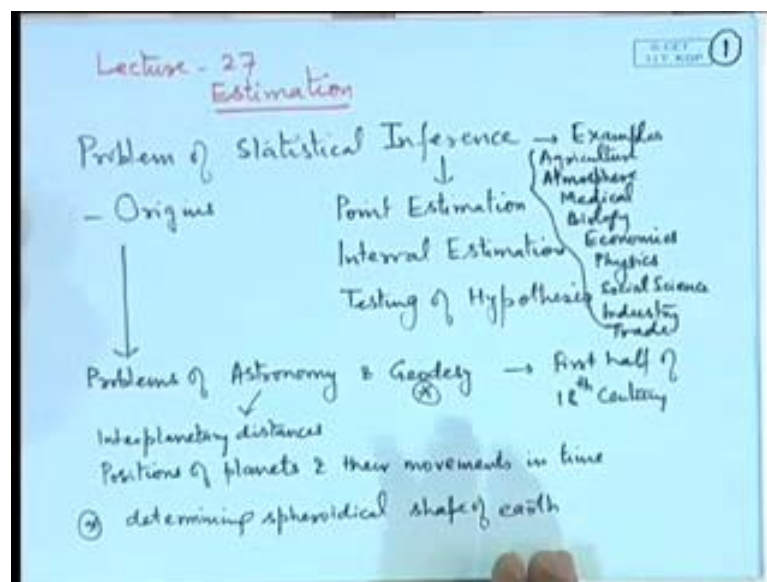 Lecture - 27
Estimation
I.I.T. KGP
1
Problem of Statistical Inference → Examples
Agriculture
Atmosphere
Medical
Biology
Economics
Physics
Social Science
Industry
Trade
- Origins
Point Estimation
Interval Estimation
Testing of Hypothesis
Problems of Astronomy & Geodesy → First half of
18th Century
Interplanetary distances
Positions of planets & their movements in time
* determining spheroidical shape of earth